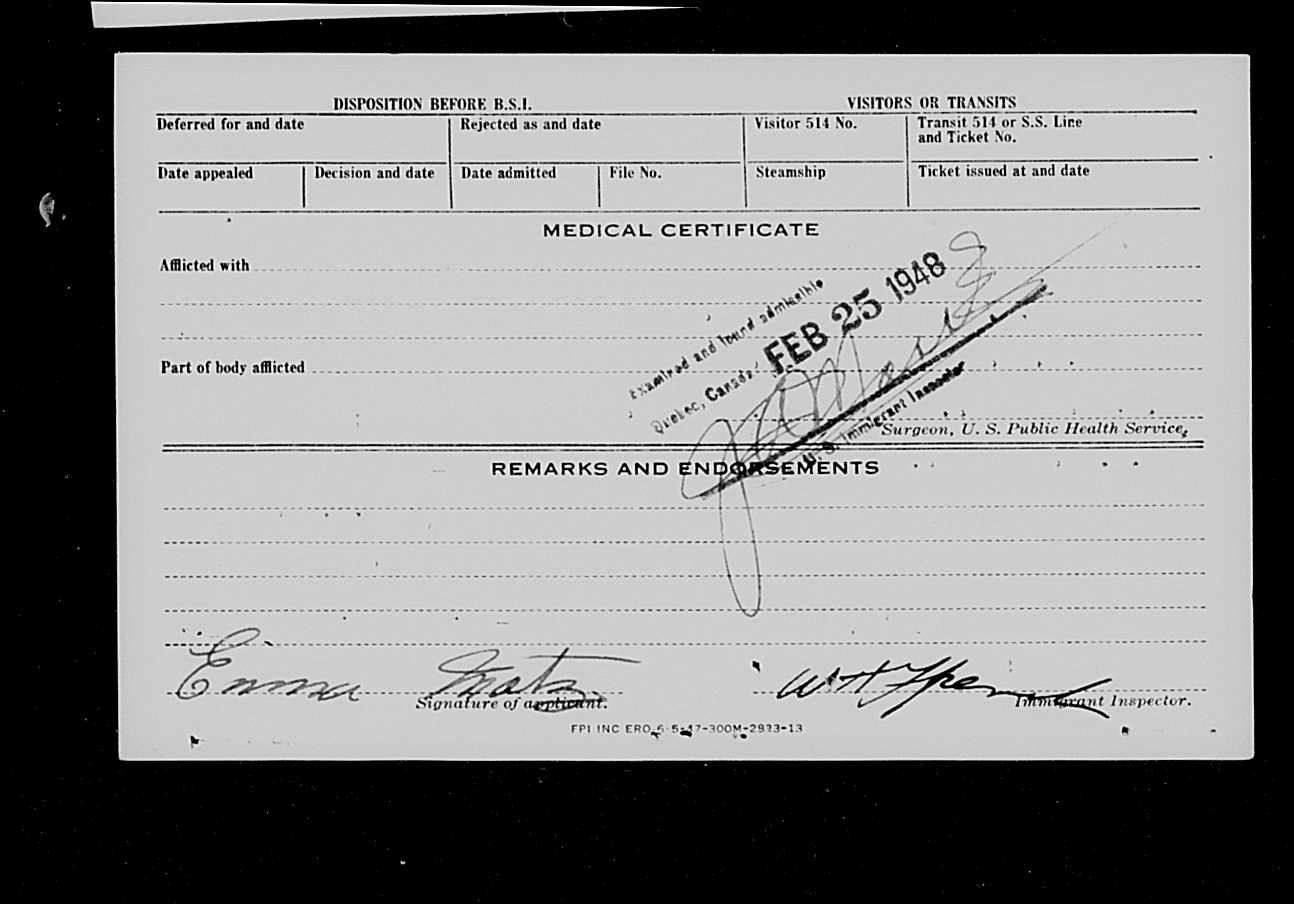 DISPOSITION BEFORE B.S.I.
VISITORS OR TRANSITS
Deferred for and date
Rejected as and date
Visitor 514 No.
Transit 514 or S.S. Line
and Ticket No.
Date appealed
Decision and date
Date admitted
File No.
Steamship
Ticket issued at and date
MEDICAL CERTIFICATE
Afflicted with
Examined and found admissible
Quebec, Canada, FEB 25 1948
Part of body afflicted
U. S. Immigrant Inspector
Surgeon, U. S. Public Health Service.
REMARKS AND ENDORSEMENTS
Emma
Signature of applicant.
Immigrant Inspector.
FPI INC ERO 6-5-47-300M-2923-13